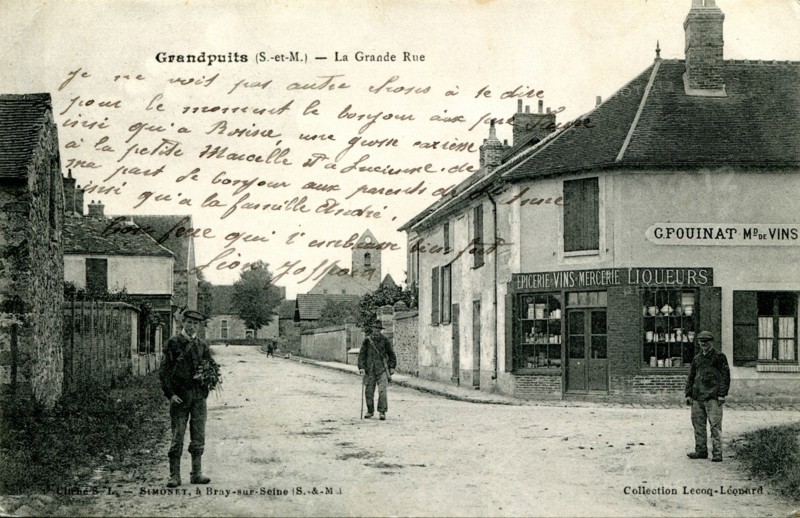 Grandpuits (S.-et-M.) — La Grande Rue
je ne vois pas autre choses à te dire
pour le moment le bonjour aux
insi qu'a Rosine, une grosse
à la petite Marcelle et a Lucienne. de
ma part de bonjour aux parents de
insi qu'a la famille André.
qui t'embrasse bien fort
Léon
G. POUINAT MD DE VINS
EPICERIE-VINS-MERCERIE LIQUEURS
Cliché S. L. — SIMONET, à Bray-sur-Seine (S.-&-M.)
Collection Lecoq-Léonard